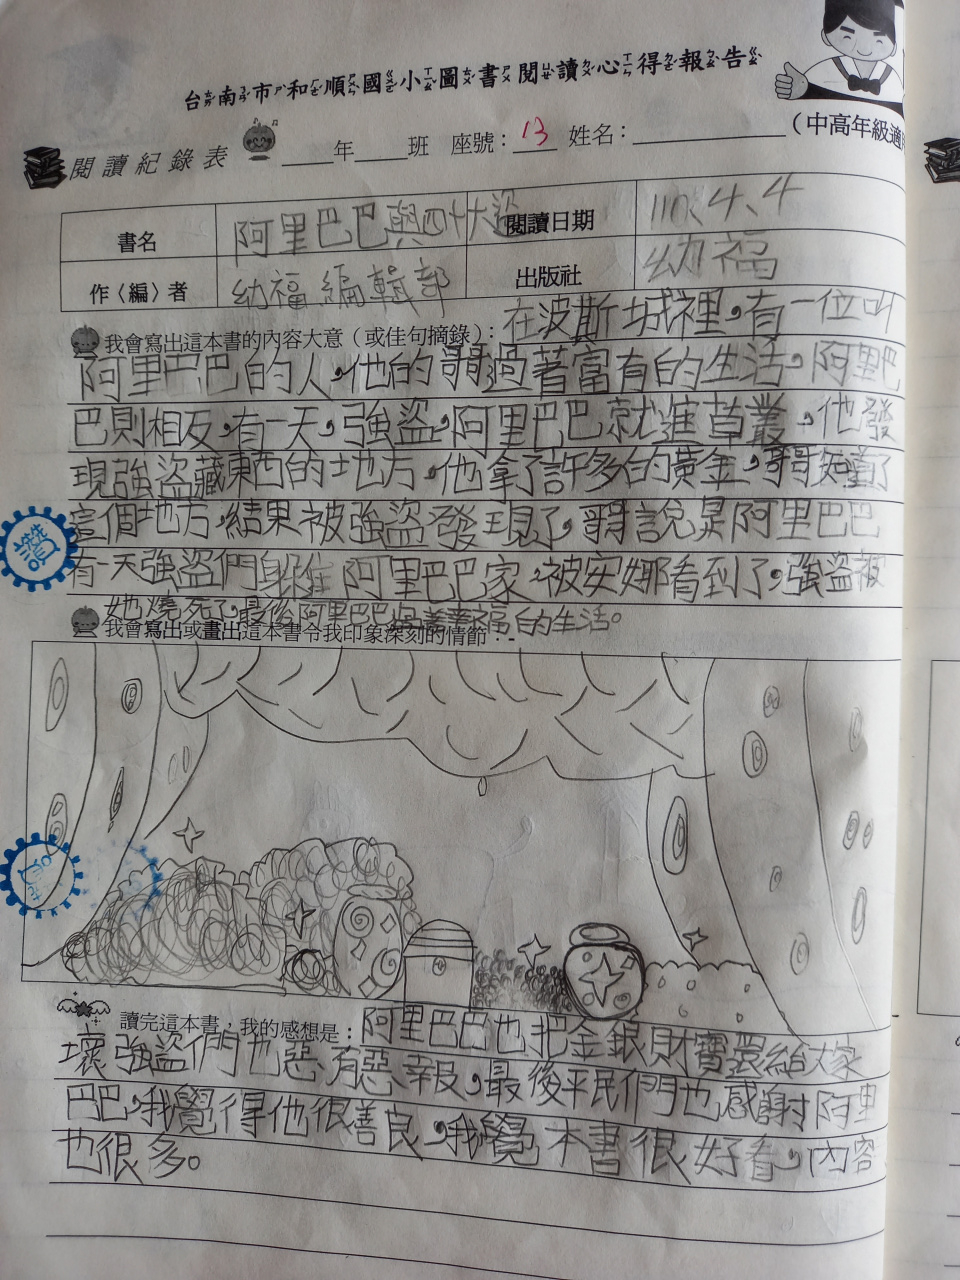 台南市和順國小圖書閱讀心得報告
(中高年級適
閱讀紀錄表 ____年____班 座號：13 姓名：
書名 阿里巴巴與四十大盜 閱讀日期 110、4、4
作〈編〉者 幼福編輯部 出版社 幼福
我會寫出這本書的內容大意（或佳句摘錄）：在波斯城裡，有一位叫
阿里巴巴的人，他的哥哥過著富有的生活，阿里巴
巴則相反，有一天，強盜，阿里巴巴就進草叢，他發
現強盜藏東西的地方，他拿了許多的黃金，哥哥知道了
這個地方，結果被強盜發現了，哥哥說是阿里巴巴
有一天強盜們躲在阿里巴巴家，被安娜看到了，強盜被
她燒死了，最後阿里巴巴過著幸福的生活。
我會寫出或畫出這本書令我印象深刻的情節：
讀完這本書，我的感想是：阿里巴巴也把金銀財寶還給大家
壞強盜們也惡有惡報，最後平民們也感謝阿里
巴巴，我覺得他很善良，我覺本書很好看，內容
也很多。
讚